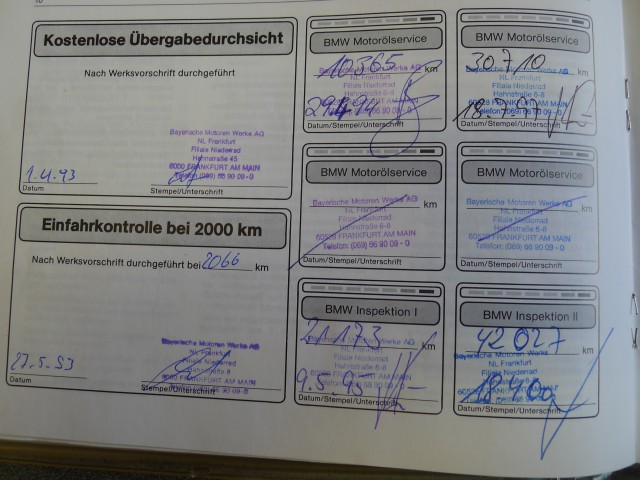 Kostenlose Übergabedurchsicht
Nach Werksvorschrift durchgeführt
Bayerische Motoren Werke AG
NL Frankfurt
Filiale Niederrad
Hahnstraße 45
6000 FRANKFURT AM MAIN
Telefon (069) 66 90 09 - 0
1.4.93
Datum
Stempel/Unterschrift
Einfahrkontrolle bei 2000 km
Nach Werksvorschrift durchgeführt bei 2066 km
Bayerische Motoren Werke AG
NL Frankfurt
Filiale Niederrad
FRANKFURT AM MAIN
27.5.93
Datum
Stempel/Unterschrift
BMW Motorölservice
10365 km
Bayerische Motoren Werke AG
NL Frankfurt
Filiale Niederrad
Hahnstraße 6-8
Datum/Stempel/Unterschrift
BMW Motorölservice
30710 km
NL Frankfurt
Filiale Niederrad
Hahnstraße 6-8
60528 FRANKFURT AM MAIN
Datum/Stempel/Unterschrift
BMW Motorölservice
km
Bayerische Motoren Werke AG
NL Frankfurt
Filiale Niederrad
Hahnstraße 6-8
60528 FRANKFURT AM MAIN
Telefon: (069) 66 90 09 - 0
Datum/Stempel/Unterschrift
BMW Motorölservice
km
Bayerische Motoren Werke AG
NL Frankfurt
Filiale Niederrad
Hahnstraße 6-8
60528 FRANKFURT AM MAIN
Telefon: (069) 66 90 09 - 0
Datum/Stempel/Unterschrift
BMW Inspektion I
21173 km
NL Frankfurt
Filiale Niederrad
9.5.95
Datum/Stempel/Unterschrift
BMW Inspektion II
42027 km
Bayerische Motoren Werke
NL Frankfurt
Filiale Niederrad
Hahnstraße 6-8
Datum/Stempel/Unterschrift